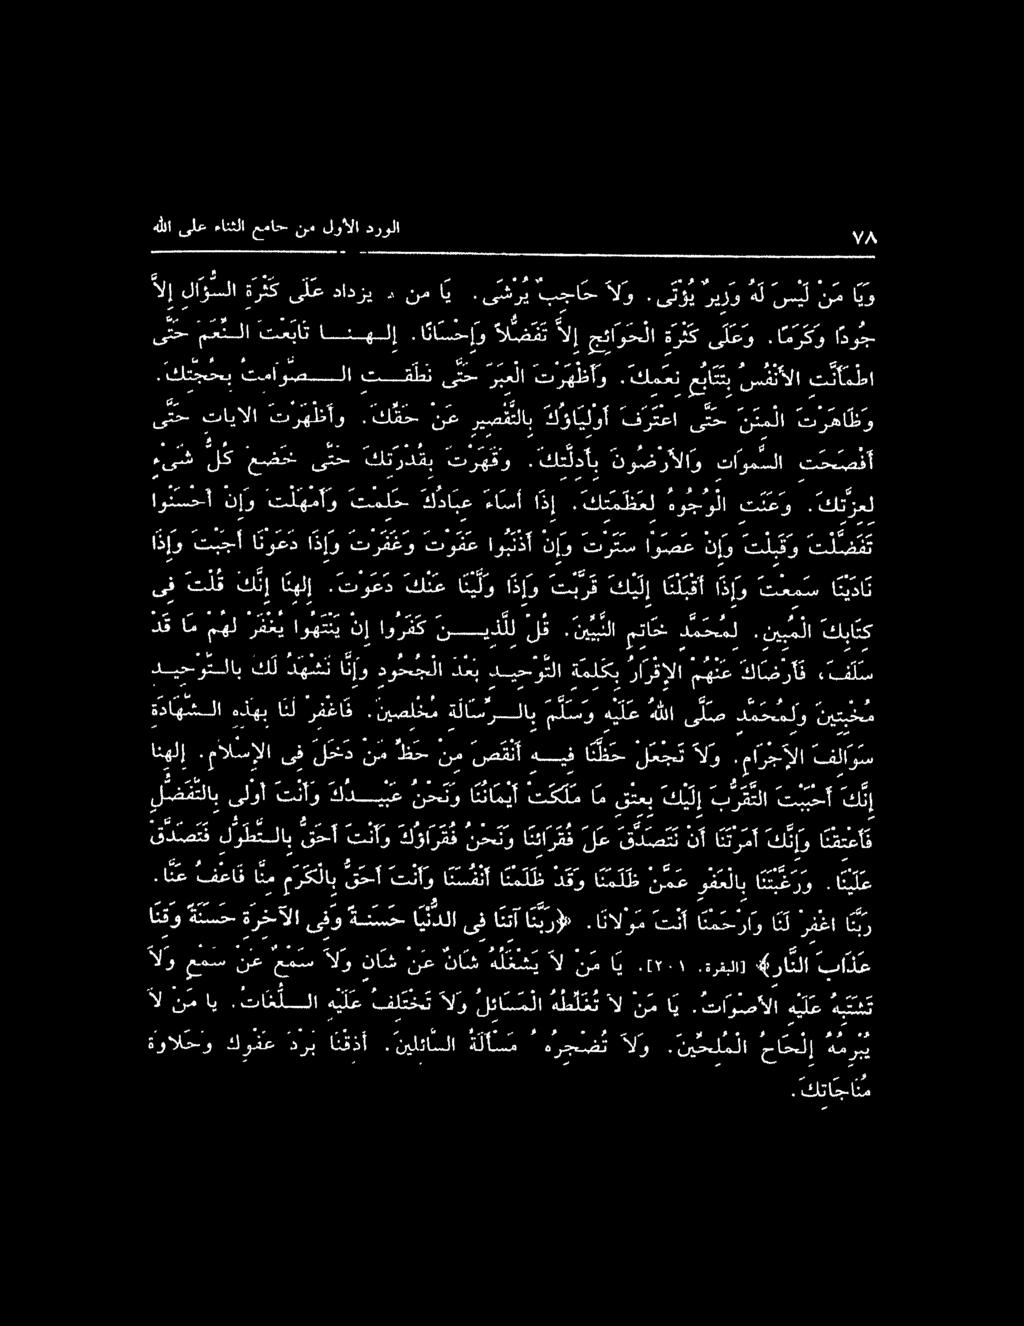 ٧٨ الورد الأول من جامع الثناء على الله
وَيَا مَنْ لَيْسَ لَهُ وَزِيرٌ يُؤْتَى. وَلاَ حَاجِبٌ يُرْشَى. يَا من يزداد عَلَى كَثْرَةِ السُّؤَالِ إِلاَّ
جُودًا وَكَرَمًا. وَعَلَى كَثْرَةِ الْحَوَائِجِ إِلاَّ تَفَضُّلاً وَإِحْسَانًا. إلـهـنـا تَابَعْتَ الـنِّعَمَ حَتَّى
اطْمَأَنَّتِ الأَنْفُسُ بِتَتَابُعِ نِعَمِكَ. وَأَظْهَرْتَ الْعِبَرَ حَتَّى نَطَقَـتِ الـصَّوَامِتُ بِحُجَّتِكَ.
وَظَاهَرْتَ الْمِنَنَ حَتَّى اعْتَرَفَ أَوْلِيَاؤُكَ بِالتَّقْصِيرِ عَنْ حَقِّكَ. وَأَظْهَرْتَ الآيَاتِ حَتَّى
أَفْصَحَتِ السَّمَوَاتُ وَالأَرْضُونَ بِأَدِلَّتِكَ. وَقَهَرْتَ بِقُدْرَتِكَ حَتَّى خَضَعَ كُلُّ شَىْءٍ
لِعِزَّتِكَ. وَعَنَتِ الْوُجُوهُ لِعَظَمَتِكَ. إِذَا أَسَاءَ عِبَادُكَ حَلِمْتَ وَأَمْهَلْتَ وَإِنْ أَحْسَنُوا
تَفَضَّلْتَ وَقَبِلْتَ وَإِنْ عَصَوْا سَتَرْتَ وَإِنْ أَذْنَبُوا عَفَوْتَ وَغَفَرْتَ وَإِذَا دَعَوْنَا أَجَبْتَ وَإِذَا
نَادَيْنَا سَمِعْتَ وَإِذَا أَقْبَلْنَا إِلَيْكَ قَرَّبْتَ وَإِذَا وَلَّيْنَا عَنْكَ دَعَوْتَ. إِلهنَا إِنَّكَ قُلْتَ فِى
كِتَابِكَ الْمُبِينِ. لِمُحَمَّدٍ خَاتِمِ النَّبِيِّينَ. قُلْ لِلَّذِيـنَ كَفَرُوا إِنْ يَنْتَهُوا يُغْفَرْ لَهُمْ مَا قَدْ
سَلَفَ، فَأَرْضَاكَ عَنْهُمْ الإِقْرَارُ بِكَلِمَةِ التَّوْحِيـدِ بَعْدَ الْجُحُودِ وَإِنَّا نَشْهَدُ لَكَ بِالـتَّوْحِيـدِ
مُخْبِتِينَ وَلِمُحَمَّدٍ صَلَّى اللهُ عَلَيْهِ وَسَلَّمَ بِالـرِّسَالَةِ مُخْلِصِينَ. فَاغْفِرْ لَنَا بِهَذِهِ الـشَّهَادَةِ
سَوَالِفَ الإِجْرَامِ. وَلاَ تَجْعَلْ حَظَّنَا فِيـهِ أَنْقَصَ مِنْ حَظِّ مَنْ دَخَلَ فِى الإِسْلاَمِ. إِلهنا
إِنَّكَ أَحْبَبْتَ التَّقَرُّبَ إِلَيْكَ بِعِتْقِ مَا مَلَكَتْ أَيْمَانُنَا وَنَحْنُ عَبِيـدُكَ وَأَنْتَ أَوْلَى بِالتَّفَضُّلِ
فَأَعْتِقْنَا وَإِنَّكَ أَمَرْتَنَا أَنْ نَتَصَدَّقَ عَلَى فُقَرَائِنَا وَنَحْنُ فُقَرَاؤُكَ وَأَنْتَ أَحَقُّ بِالـتَّطَوُّلِ فَتَصَدَّقْ
عَلَيْنَا. وَرَغَّبْتَنَا بِالْعَفْوِ عَمَّنْ ظَلَمَنَا وَقَدْ ظَلَمْنَا أَنْفُسَنَا وَأَنْتَ أَحَقُّ بِالْكَرَمِ مِنَّا فَاعْفُ عَنَّا.
رَبَّنَا اغْفِرْ لَنَا وَارْحَمْنَا أَنْتَ مَوْلاَنَا. ﴿رَبَّنَا آتِنَا فِى الدُّنْيَا حَسَنَةً وَفِى الآخِرَةِ حَسَنَةً وَقِنَا
عَذَابَ النَّارِ﴾ [البقرة. ٢٠١]. يَا مَنْ لاَ يَشْغَلُهُ شَانٌ عَنْ شَانٍ وَلاَ سَمْعٌ عَنْ سَمْعٍ وَلاَ
تَشْتَبِهُ عَلَيْهِ الأَصْوَاتُ. يَا مَنْ لاَ تُغَلِّطُهُ الْمَسَائِلُ وَلاَ تَخْتَلِفُ عَلَيْهِ الـلُّغَاتُ. يا مَنْ لاَ
يُبْرِمُهُ إِلْحَاحُ الْمُلِحِّينَ. وَلاَ تُضْجِرُهُ مَسْأَلَةُ السَّائِلِينَ. أَذِقْنَا بَرْدَ عَفْوِكَ وَحَلاَوَةَ
مُنَاجَاتِكَ.